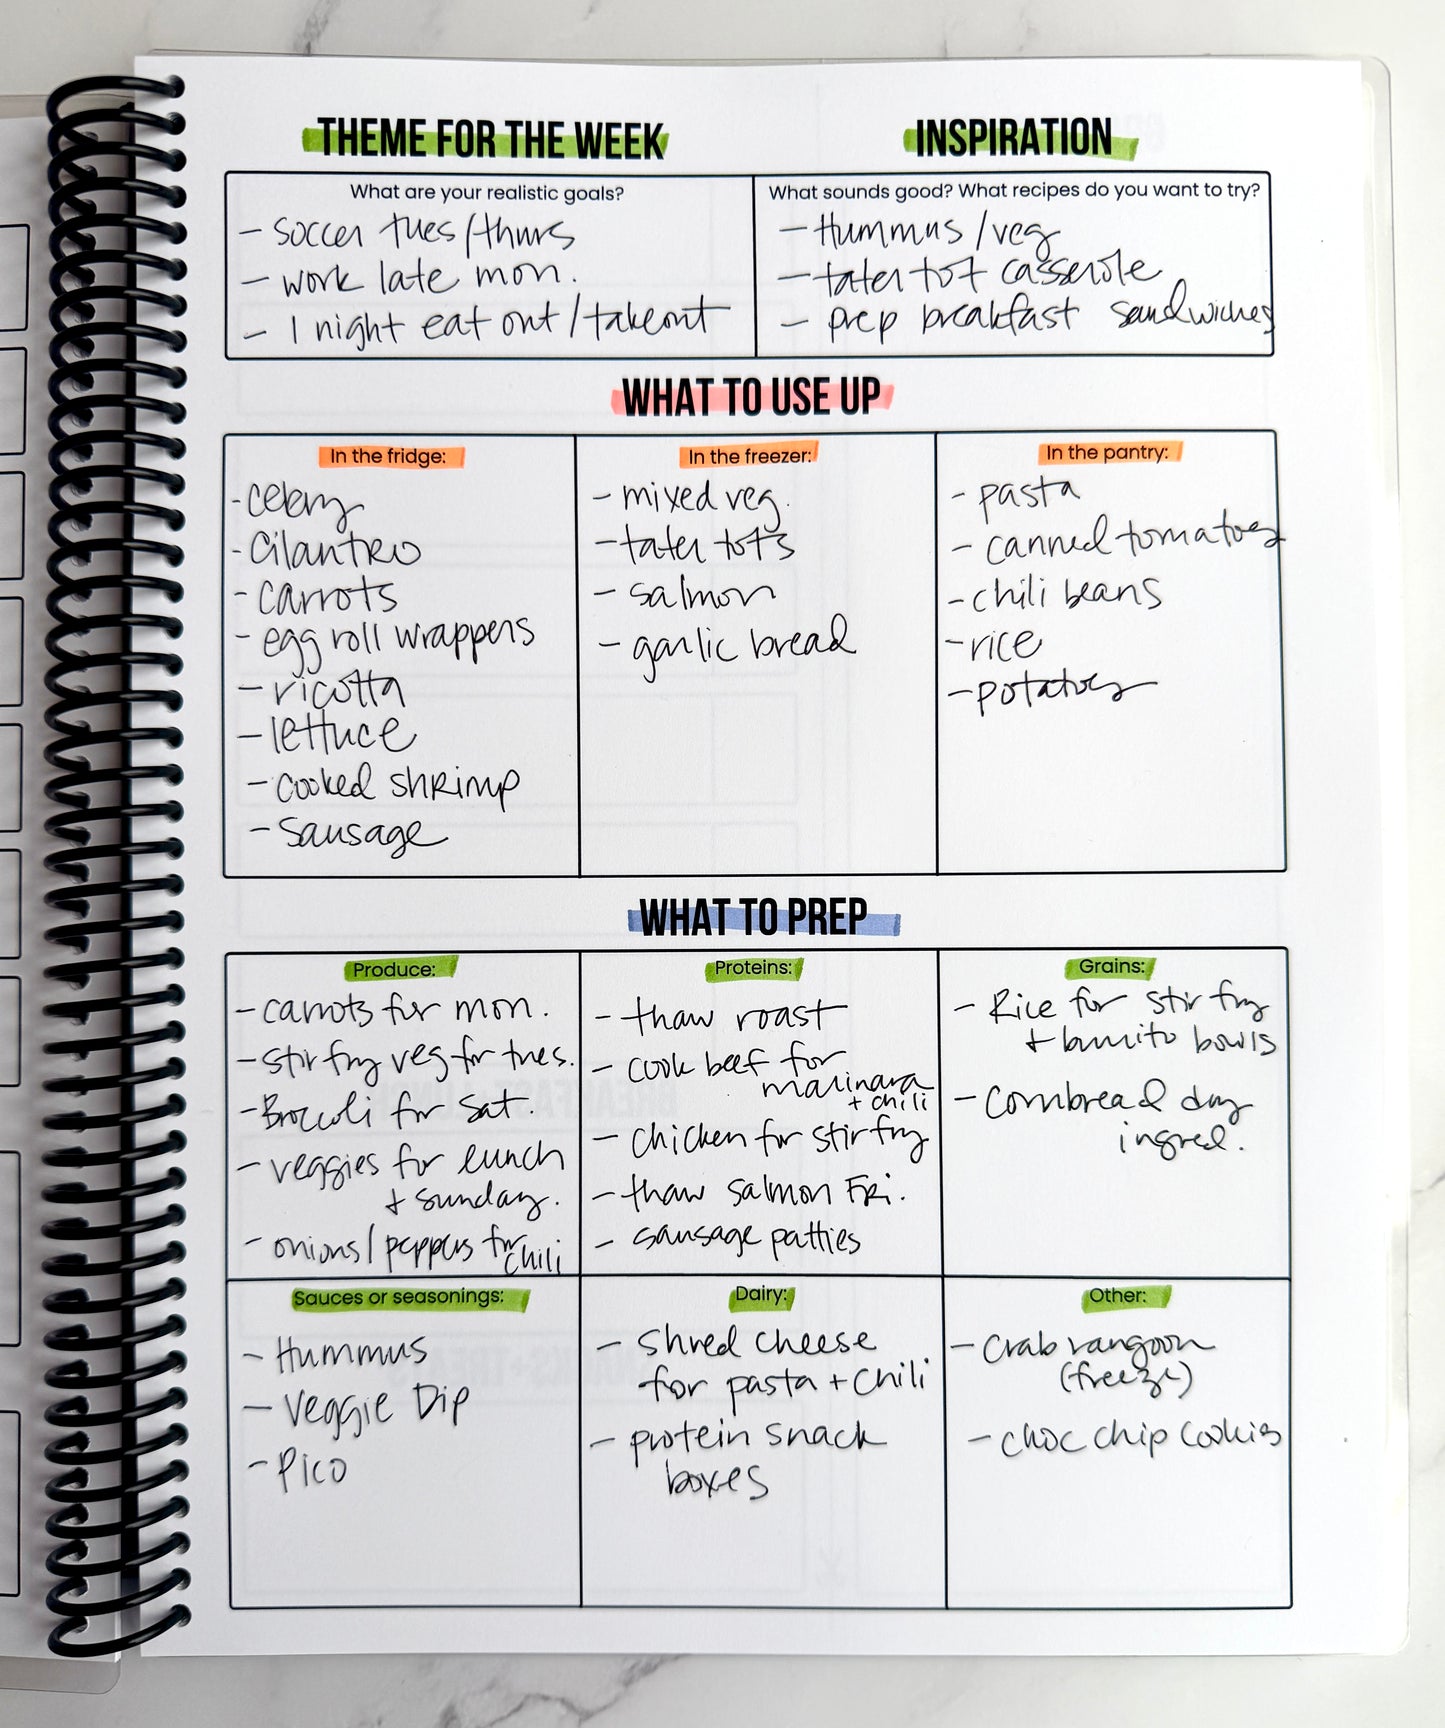 THEME FOR THE WEEK
What are your realistic goals?
- soccer tues/thurs
- work late mon.
- 1 night eat out/takeout
INSPIRATION
What sounds good? What recipes do you want to try?
- Hummus/veg
- tater tot casserole
- prep breakfast sandwiches
WHAT TO USE UP
In the fridge:
- celery
- Cilantro
- carrots
- egg roll wrappers
- ricotta
- lettuce
- cooked shrimp
- sausage
In the freezer:
- mixed veg.
- tater tots
- salmon
- garlic bread
In the pantry:
- pasta
- canned tomatoes
- chili beans
- rice
- potatoes
WHAT TO PREP
Produce:
- carrots for mon.
- stir fry veg for tues.
- Broccoli for Sat.
- veggies for lunch
+ sunday.
- onions/peppers for
chili
Proteins:
- thaw roast
- cook beef for
marinara
+ chili
- chicken for stir fry
- thaw salmon Fri.
- sausage patties
Grains:
- Rice for stir fry
+ burrito bowls
- Cornbread dry
ingred.
Sauces or seasonings:
- Hummus
- Veggie Dip
- Pico
Dairy:
- shred cheese
for pasta + chili
- protein snack
boxes
Other:
- Crab rangoon
(freeze)
- choc chip cookies